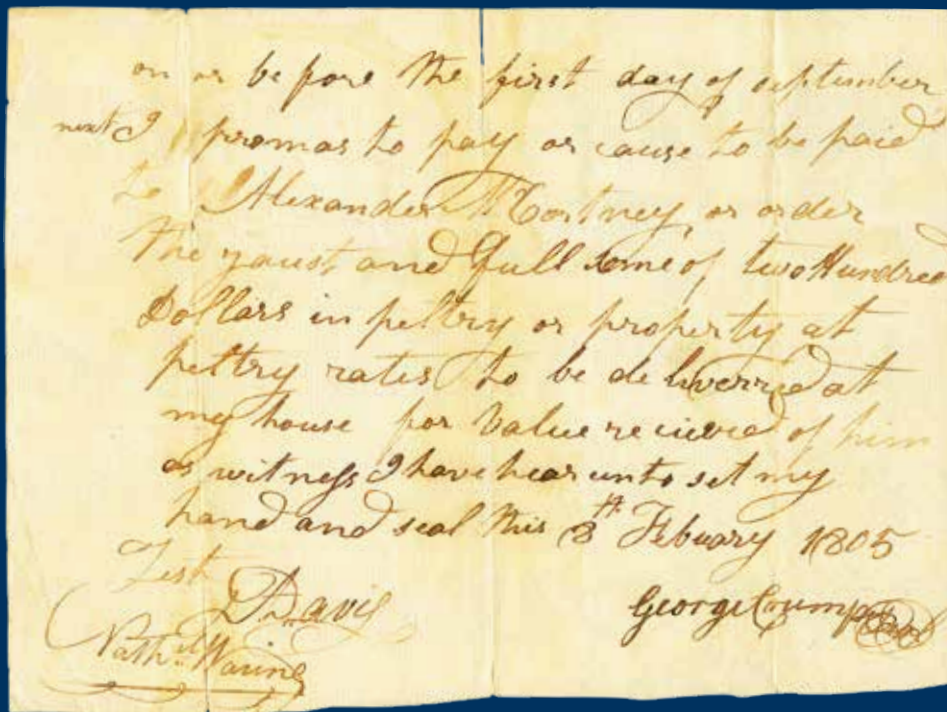 on or before the first day of september
next I promas to pay or cause to be paid
to Alexander McCortney, or order
the yaust and full some of two Hundred
Dollars in peltry or property at
peltry rates to be deliverred at
my house for value recieved of him
as witness I have hear unto set my
hand and seal this 8th Febuary 1805
Test
Davis
George Crump
Nathl. Waring